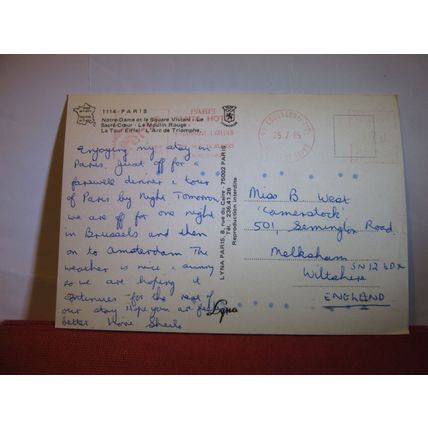 1114 - PARIS
Notre-Dame et le Square Viviani - Le
Sacré-Cœur - Le Moulin Rouge -
La Tour Eiffel - L'Arc de Triomphe.
Enjoying my stay in
Paris. Just off for a
farewell dinner & tour
of Paris by Night. Tomorrow
we are off for one night
in Brussels and then
on to Amsterdam The
weather is nice & sunny
so we are hoping it
continues for the rest of
our stay Hope you are feeling
better Love Sheila
PARIS
25.7.85
LYNA PARIS, 8, rue du Caire, 75002 PARIS
Tél. : 236.41.28
Reproduction interdite
Lyna
Miss B. West
'Camerstock'
501, Semington Road
Melksham
SN12 6DX
Wiltshire
ENGLAND